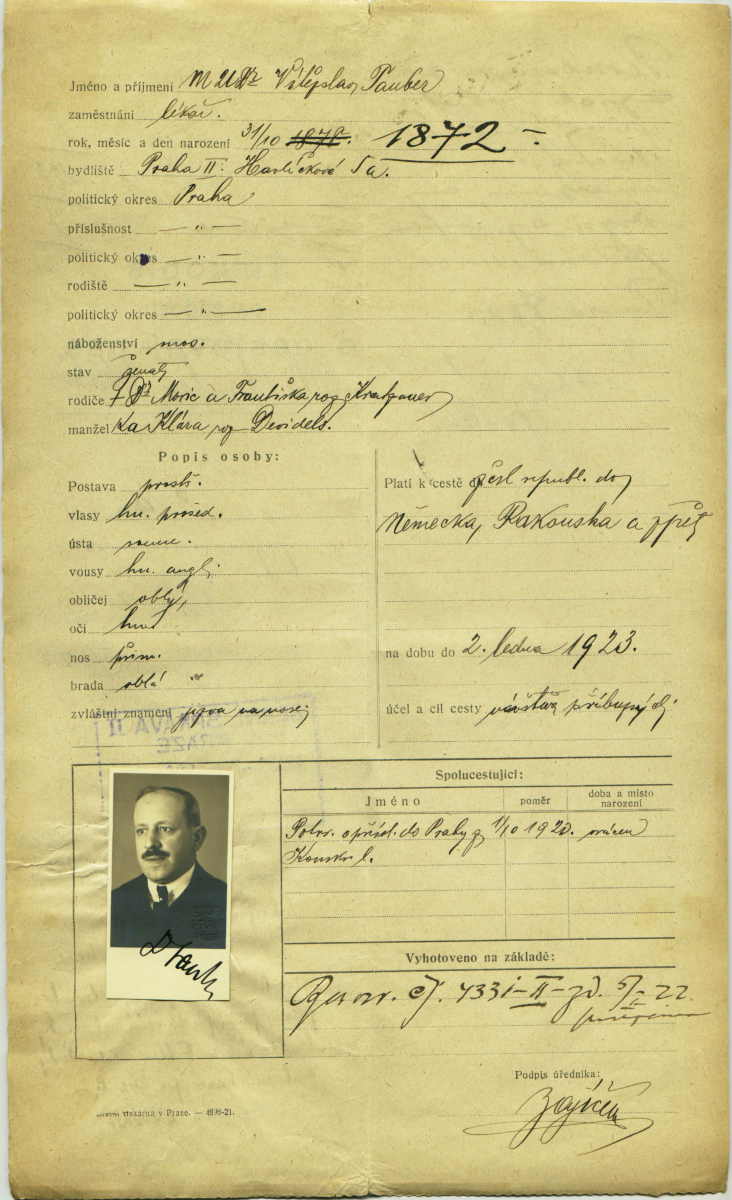 Jméno a příjmení MUDr Vítězslav Tauber
zaměstnání lékař.
rok, měsíc a den narození 31/10 1872 –
bydliště Praha II. Havlíčkova 5a.
politický okres Praha
příslušnost — „ —
politický okres — „ —
rodiště — „ —
politický okres — „ —
náboženství mos.
stav ženatý
rodiče † Dr Moric a Františka roz.
manžel ka Klára roz.
Popis osoby:
Postava prostř.
vlasy hn. prošed.
ústa soum.
vousy hn. angl.
obličej oblý
oči hně
nos přím.
brada oblá
zvláštní znamení jizva na nose
Platí k cestě do čsl. republ. do
Německa, Rakouska a zpět
na dobu do 2. ledna 1923.
účel a cíl cesty návštěva příbuzných
Spolucestující:
Jméno
poměr
doba a místo narození
Potvr. o přísl. do Prahy z 1/10 1920. vrácen
Konskr. l.
Vyhotoveno na základě:
čj. 4331-II- 22
Podpis úředníka:
Zajíček
tiskárna v Praze. — 4896-21.
Dr Taub